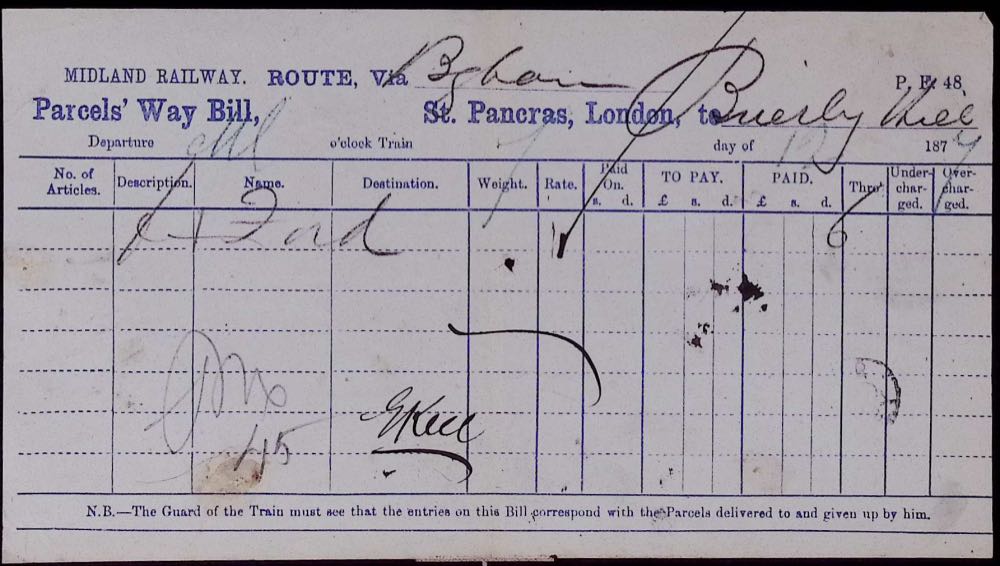 MIDLAND RAILWAY. ROUTE, Via Bgham P. F. 48
Parcels' Way Bill, St. Pancras, London, to Brierly Hill
Departure o'clock Train 7 day of 12 1874
No. of Articles. Description. Name. Destination. Weight. Rate. Paid On. s. d. TO PAY. £ s. d. PAID. £ s. d. Thro' Under-char-ged. Over-char-ged.
Ford 6
45
N.B.—The Guard of the Train must see that the entries on this Bill correspond with the Parcels delivered to and given up by him.